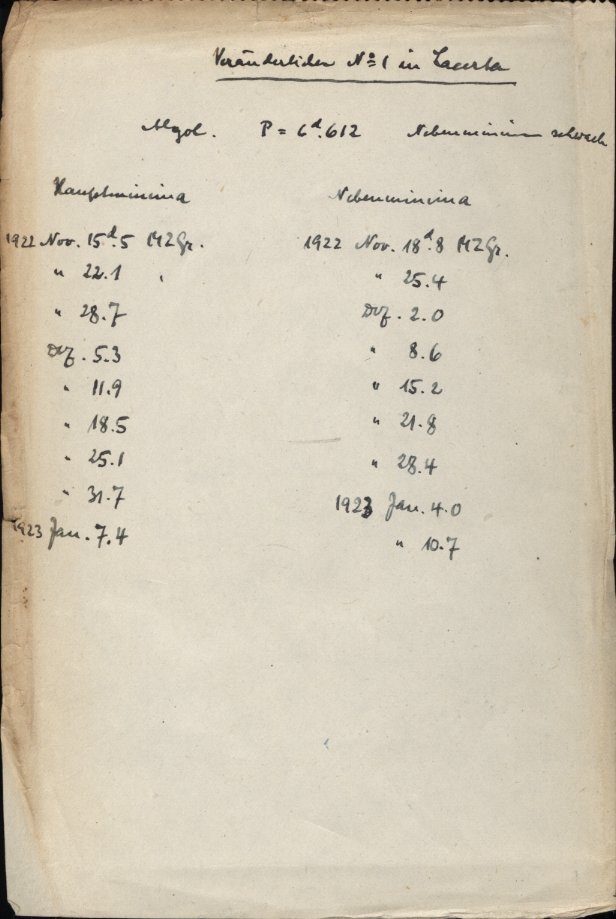 Veränderlicher No 1 in Lacerta
Algol. P = 6d.612 Nebenminimum schwach
Hauptminima Nebenminima
1922 Nov. 15d.5 MZGr. 1922 Nov. 18d.8 MZGr.
" 22.1 " 25.4
" 28.7 Dez. 2.0
Dez. 5.3 " 8.6
" 11.9 " 15.2
" 18.5 " 21.8
" 25.1 " 28.4
" 31.7 1923 Jan. 4.0
1923 Jan. 7.4 " 10.7